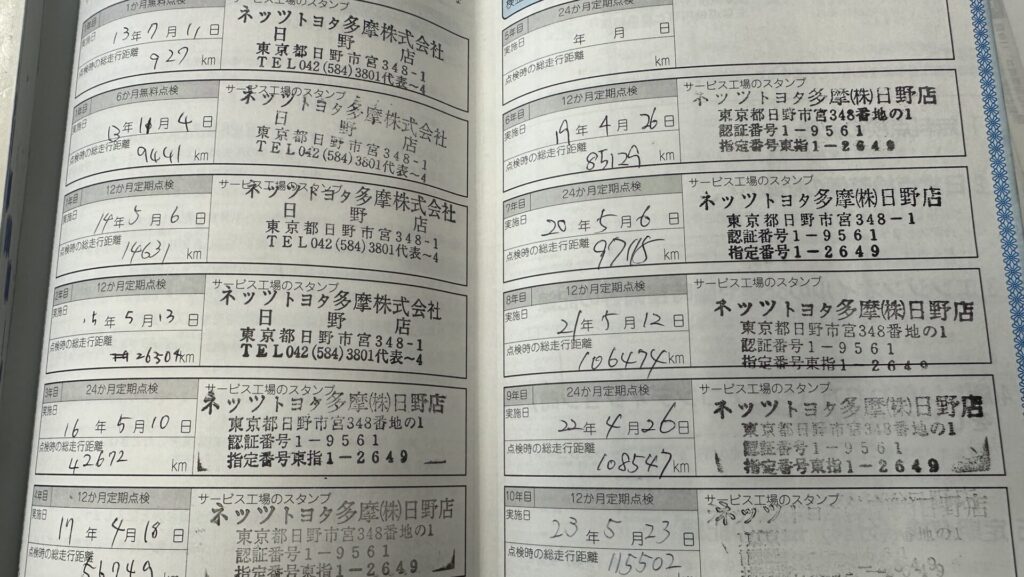 1か月無料点検
サービス工場のスタンプ
実施日 13年 7月 11日
点検時の総走行距離
927 km
ネッツトヨタ多摩株式会社
日野店
東京都日野市宮348-1
TEL042(584)3801代表~4
6か月無料点検
サービス工場のスタンプ
実施日
点検時の総走行距離
9441 km
ネッツトヨタ多摩株式会社
日野店
東京都日野市宮348-1
TEL042(584)3801代表~4
1年目 12か月定期点検
サービス工場のスタンプ
実施日 14年 5月 6日
点検時の総走行距離
14631 km
ネッツトヨタ多摩株式会社
日野店
東京都日野市宮348-1
TEL042(584)3801代表~4
2年目 12か月定期点検
サービス工場のスタンプ
実施日 15年 5月 13日
点検時の総走行距離
km
ネッツトヨタ多摩株式会社
日野店
東京都日野市宮348-1
TEL042(584)3801代表~4
3年目 24か月定期点検
サービス工場のスタンプ
実施日 16年 5月 10日
点検時の総走行距離
42672 km
ネッツトヨタ多摩(株)日野店
東京都日野市宮348番地の1
認証番号1-9561
指定番号東指1-2649
4年目 12か月定期点検
サービス工場のスタンプ
実施日 17年 4月 18日
点検時の総走行距離
56749 km
ネッツトヨタ多摩(株)日野店
東京都日野市宮348番地の1
認証番号1-9561
指定番号東指1-2649
5年目 24か月定期点検
実施日 年 月 日
点検時の総走行距離
km
6年目 12か月定期点検
サービス工場のスタンプ
実施日 19年 4月 26日
点検時の総走行距離
85129 km
ネッツトヨタ多摩(株)日野店
東京都日野市宮348番地の1
認証番号1-9561
指定番号東指1-2649
7年目 24か月定期点検
サービス工場のスタンプ
実施日 20年 5月 6日
点検時の総走行距離
km
ネッツトヨタ多摩(株)日野店
東京都日野市宮348-1
認証番号1-9561
指定番号1-2649
8年目 12か月定期点検
サービス工場のスタンプ
実施日 21年 5月 12日
点検時の総走行距離
106474 km
ネッツトヨタ多摩(株)日野店
東京都日野市宮348番地の1
認証番号1-9561
指定番号東指1-2649
9年目 24か月定期点検
サービス工場のスタンプ
実施日 22年 4月 26日
点検時の総走行距離
108547 km
ネッツトヨタ多摩(株)日野店
東京都日野市宮348番地の1
認証番号1-9561
指定番号東指1-2649
10年目 12か月定期点検
サービス工場のスタンプ
実施日 23年 5月 23日
点検時の総走行距離
115502 km